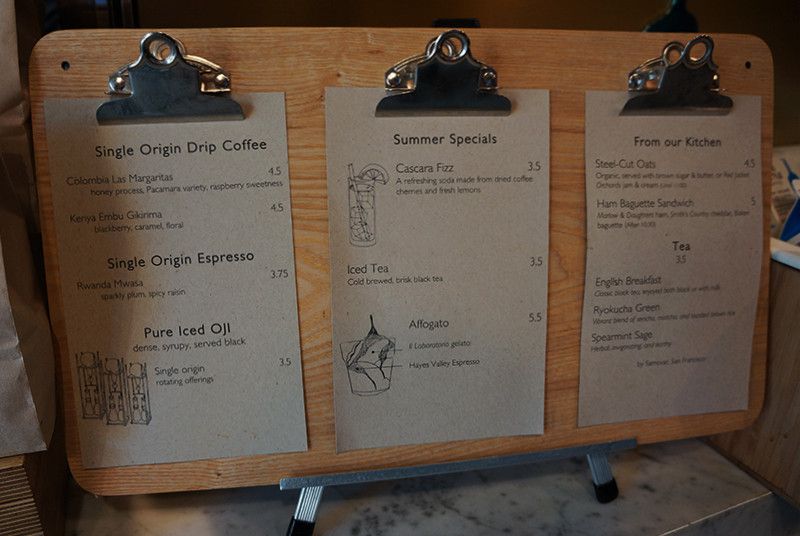 Single Origin Drip Coffee
Colombia Las Margaritas 4.5
honey process, Pacamara variety, raspberry sweetness
Kenya Embu Gikirima 4.5
blackberry, caramel, floral
Single Origin Espresso
Rwanda Mwasa 3.75
sparkly plum, spicy raisin
Pure Iced OJI
dense, syrupy, served black
Single origin 3.5
rotating offerings
Summer Specials
Cascara Fizz 3.5
A refreshing soda made from dried coffee
cherries and fresh lemons
Iced Tea 3.5
Cold brewed, brisk black tea
Affogato 5.5
Il Laboratorio gelato
Hayes Valley Espresso
From our Kitchen
Steel-Cut Oats 4.5
Organic, served with brown sugar & butter, or Red Jacket
Orchards jam & cream
Ham Baguette Sandwich 5
Marlow & Daughters ham, Smith's Country cheddar,
baguette (After 10:30)
Tea
3.5
English Breakfast
Classic black tea, enjoyed both black or with milk
Ryokucha Green
Vibrant blend of sencha, matcha, and toasted brown rice
Spearmint Sage
Herbal, invigorating, and earthy
by Samovar, San Francisco